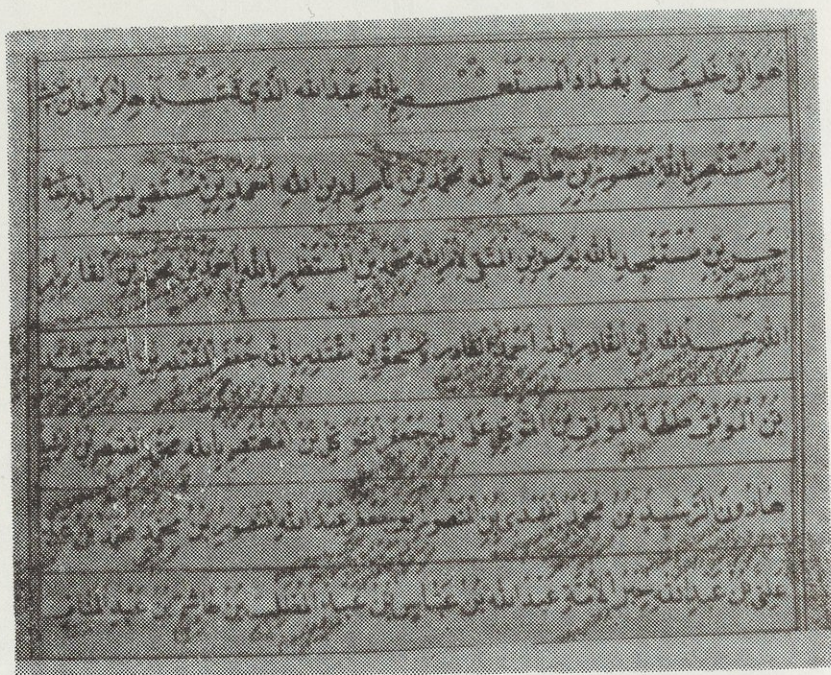 هُوَ ابْنُ خَلِيفَةِ بَغْدَادَ الْمُسْتَعْصِمِ بِاللهِ عَبْدُ اللهِ الَّذِي قَتَلَهُ هلاكوخان
بْنِ مُسْتَنْصِرِ بِاللهِ مَنْصُورِ بْنِ طَاهِرِ بِاللهِ مُحَمَّدِ بْنِ نَاصِرِ لِدِينِ اللهِ اَحْمَدِ بْنِ مُسْتَضِى بِنُورِ اللهِ
حَسَنِ بْنِ مُسْتَنْجِدِ بِاللهِ يُوسُفِ بْنِ الْمُتَّقِى لِاَمْرِ اللهِ مُحَمَّدِ بْنِ الْمُسْتَظْهِرِ بِاللهِ اَحْمَدِ بْنِ مُحَمَّدِ بْنِ الْقَائِمِ
اللهِ عَبْدِ اللهِ بْنِ الْقَادِرِ بِاللهِ اَحْمَدَ الْقَادِرِ بْنِ مُقْتَدِرِ بِاللهِ جَعْفَرِ الْمُقْتَدِرِ بْنِ الْمُعْتَضَدِ
بْنِ الْمُوَفَّقِ طَلْحَةَ الْمُوَفَّقِ بْنِ الْمُتَوَكِّلِ عَلَى اللهِ جَعْفَرِ الْمُتَوَكِّلِ بْنِ الْمُعْتَصِمِ بِاللهِ مُحَمَّدِ الْمُعْتَصِمِ بْنِ الرشيد
هَارُونَ الرَّشِيدِ بْنِ مُحَمَّدِ الْمَهْدِى بْنِ الْمَنْصُورِ عَبْدُ اللهِ الْمَنْصُورِ بْنِ مُحَمَّدِ مُحَمَّدِ بْنِ عَلِى
عَلِىِّ بْنِ عَبْدِ اللهِ حِبْرِ الْاُمَّةِ عَبْدِ اللهِ بْنِ عَبَّاسِ بْنِ عَبْدِ الْمُطَّلِبِ بْنِ هَاشِمِ بْنِ عَبْدِ الْمَنَافِ